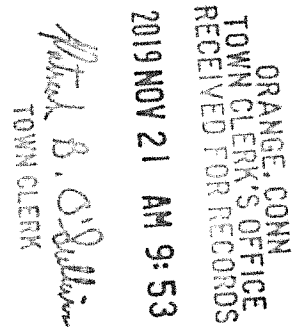 ORANGE, CONN
TOWN CLERK'S OFFICE
RECEIVED FOR RECORDS
2019 NOV 21 AM 9:53
B. O'Sullivan
TOWN CLERK